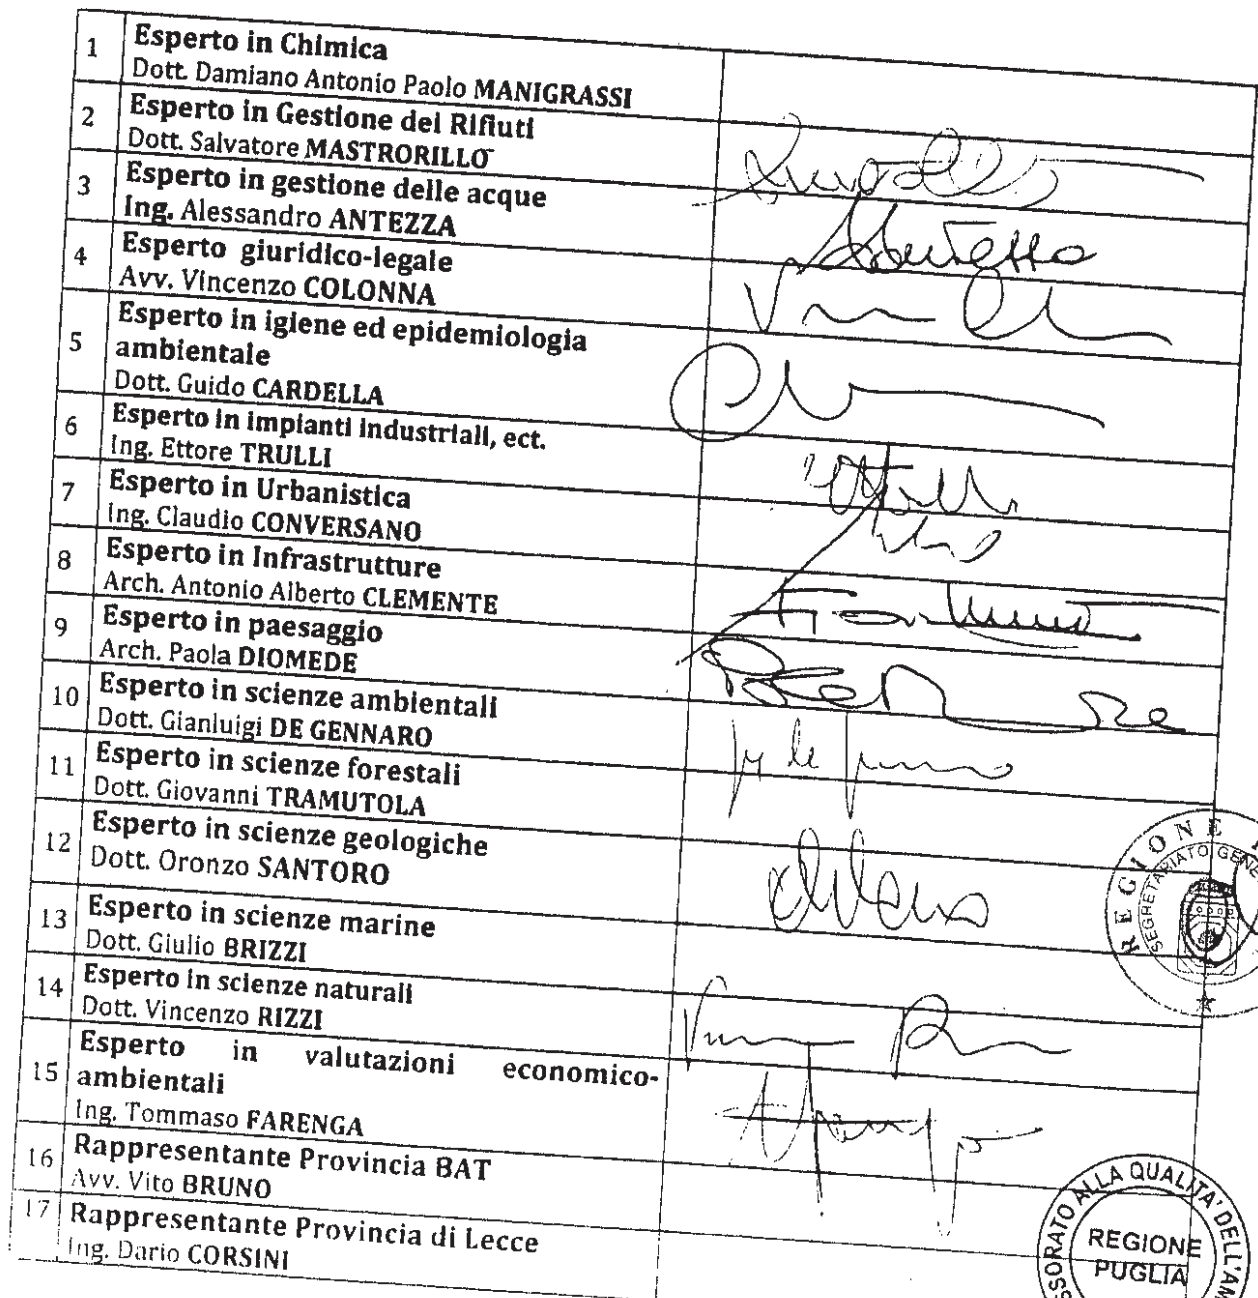 1 Esperto in Chimica
Dott. Damiano Antonio Paolo MANIGRASSI
2 Esperto in Gestione dei Rifiuti
Dott. Salvatore MASTRORILLO
3 Esperto in gestione delle acque
Ing. Alessandro ANTEZZA
4 Esperto giuridico-legale
Avv. Vincenzo COLONNA
5 Esperto in igiene ed epidemiologia
ambientale
Dott. Guido CARDELLA
6 Esperto in impianti industriali, ect.
Ing. Ettore TRULLI
7 Esperto in Urbanistica
Ing. Claudio CONVERSANO
8 Esperto in Infrastrutture
Arch. Antonio Alberto CLEMENTE
9 Esperto in paesaggio
Arch. Paola DIOMEDE
10 Esperto in scienze ambientali
Dott. Gianluigi DE GENNARO
11 Esperto in scienze forestali
Dott. Giovanni TRAMUTOLA
12 Esperto in scienze geologiche
Dott. Oronzo SANTORO
13 Esperto in scienze marine
Dott. Giulio BRIZZI
14 Esperto in scienze naturali
Dott. Vincenzo RIZZI
15 Esperto in valutazioni economico-
ambientali
Ing. Tommaso FARENGA
16 Rappresentante Provincia BAT
Avv. Vito BRUNO
17 Rappresentante Provincia di Lecce
Ing. Dario CORSINI
REGIONE
SEGRETARIATO GENE
ESSORATO ALLA QUALITA' DELL'AM
REGIONE
PUGLIA